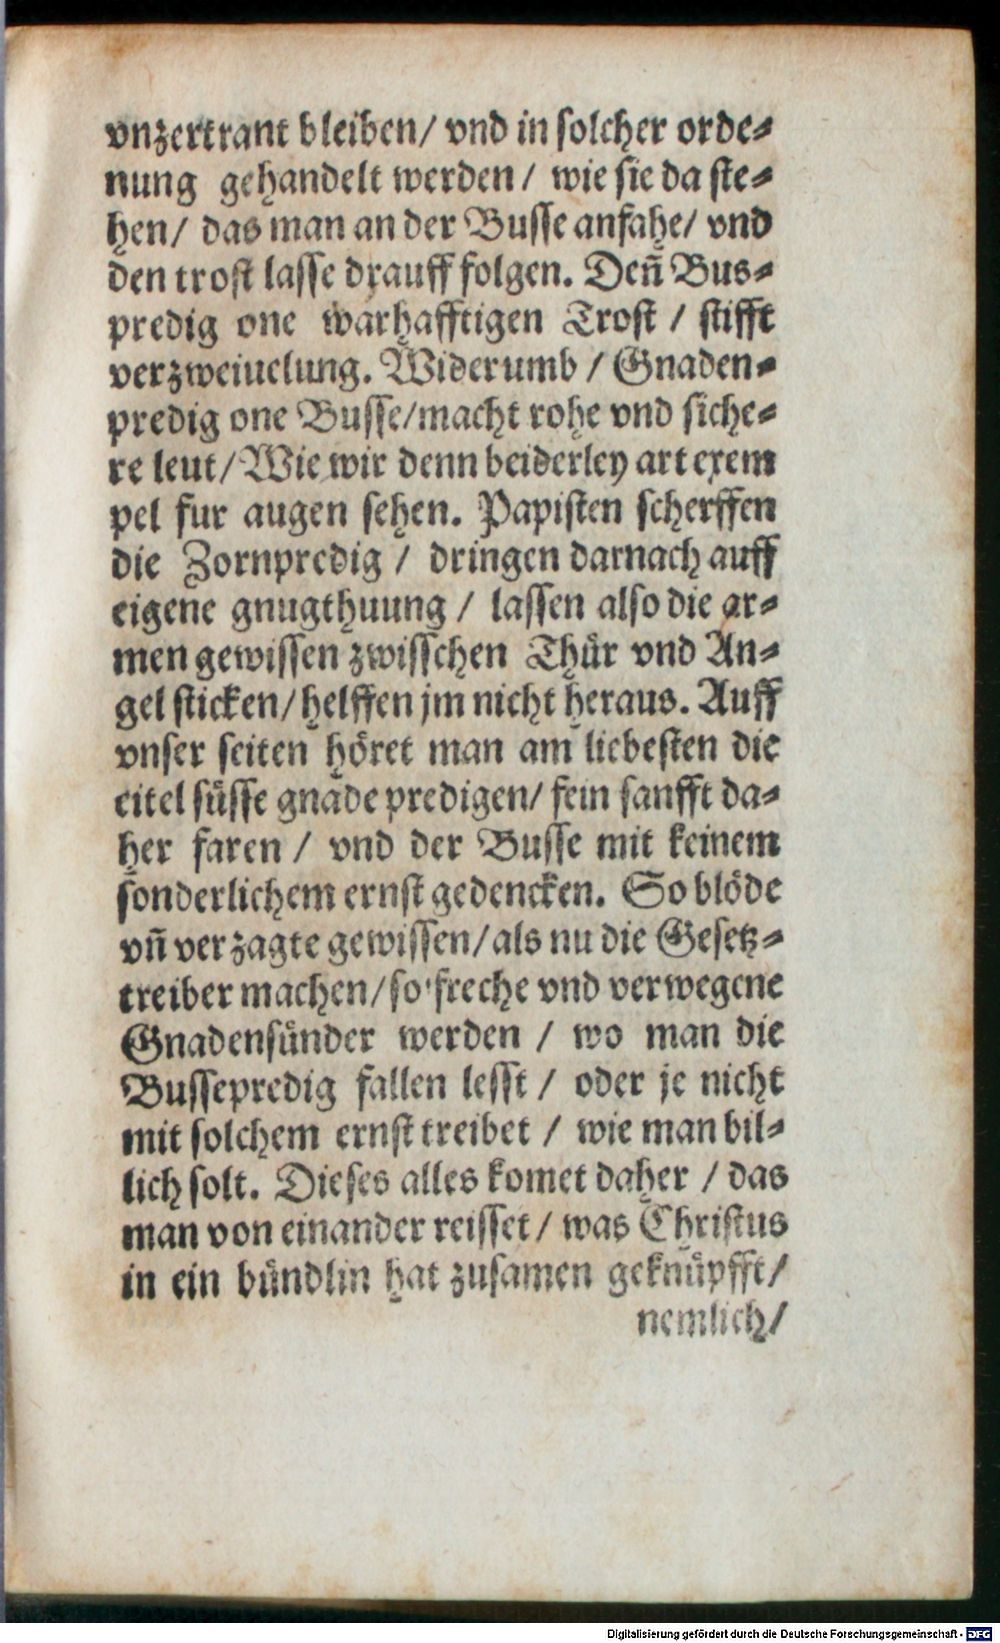 vnzertrant bleiben/ vnd in solcher orde⸗
nung gehandelt werden / wie sie da ste⸗
hen/ das man an der Busse anfahe/ vnd
den trost lasse drauff folgen. Deñ Bus⸗
predig one warhafftigen Trost / stifft
verzweiuelung. Widerumb / Gnaden⸗
predig one Busse/macht rohe vnd siche⸗
re leut/ Wie wir denn beiderley art exem
pel fur augen sehen. Papisten scherffen
die Zornpredig / dringen darnach auff
eigene gnugthuung / lassen also die ar⸗
men gewissen zwisschen Thür vnd An⸗
gel sticken/ helffen jm nicht heraus. Auff
vnser seiten höret man am liebesten die
eitel süsse gnade predigen/ fein sanfft da⸗
her faren / vnd der Busse mit keinem
sonderlichem ernst gedencken. So blöde
vñ verzagte gewissen/ als nu die Gesetz⸗
treiber machen/ so freche vnd verwegene
Gnadensünder werden / wo man die
Bussepredig fallen lesst / oder je nicht
mit solchem ernst treibet / wie man bil⸗
lich solt. Dieses alles komet daher / das
man von einander reisset / was Christus
in ein bündlin hat zusamen geknüpfft/
nemlich/
Digitalisierung gefördert durch die Deutsche Forschungsgemeinschaft - DFG